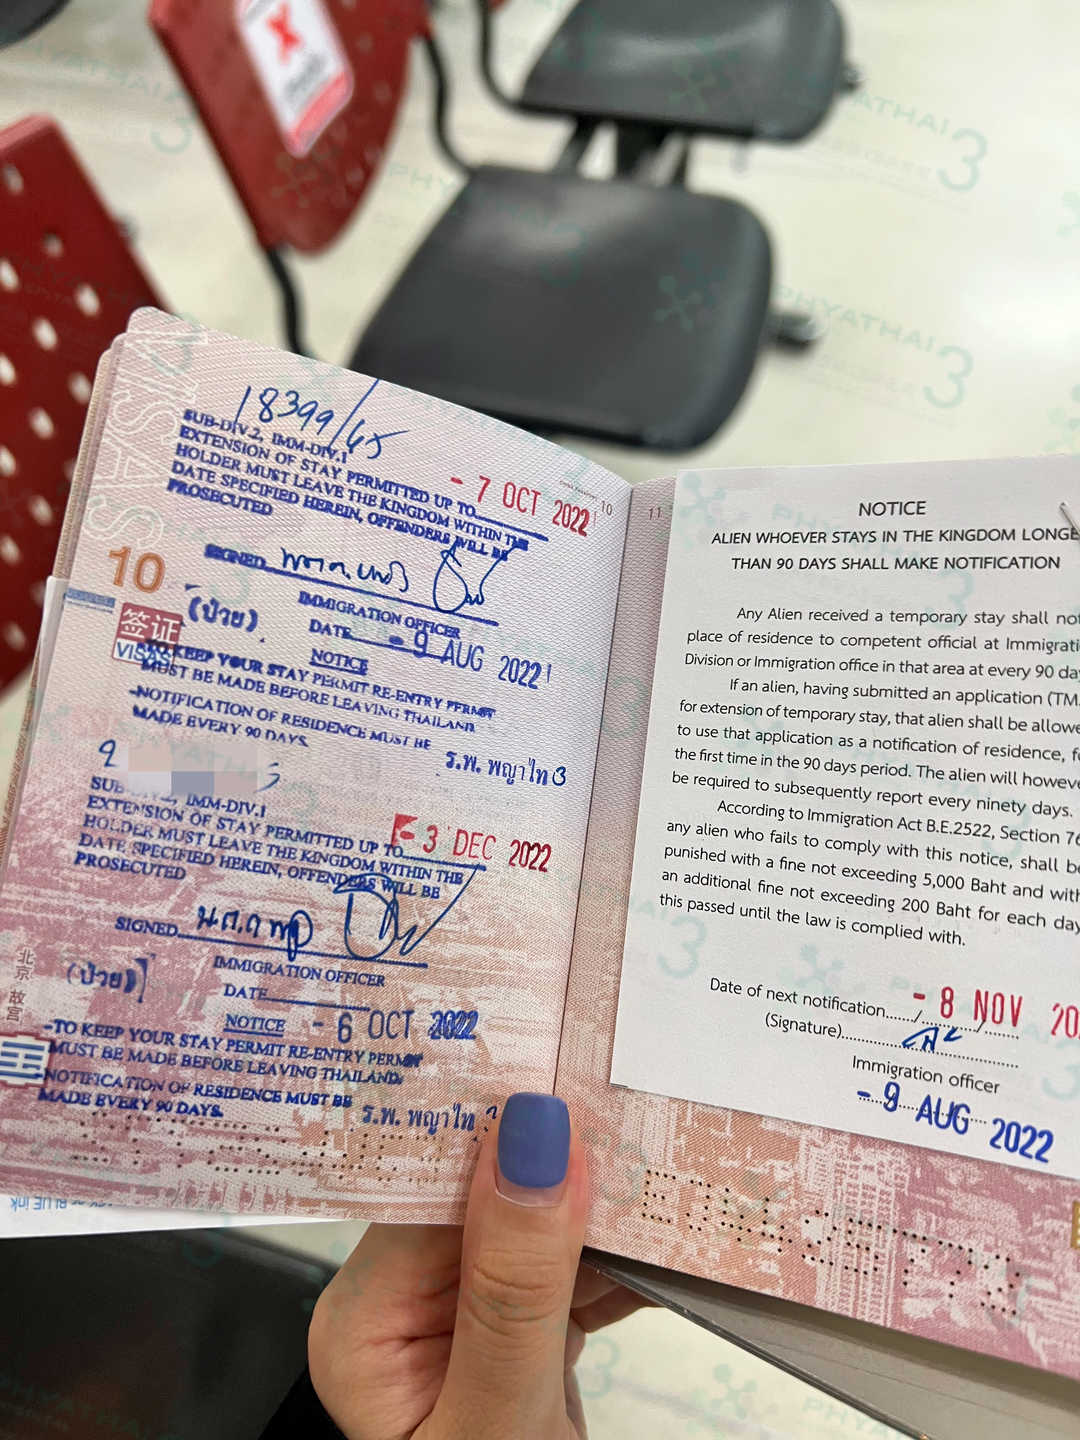 VISAS
10
签证
VISAS
18399/65
SUB-DIV.2, IMM-DIV.1
EXTENSION OF STAY PERMITTED UP TO
- 7 OCT 2022
HOLDER MUST LEAVE THE KINGDOM WITHIN THE
DATE SPECIFIED HEREIN, OFFENDERS WILL BE
PROSECUTED
SIGNED
IMMIGRATION OFFICER
(ป่วย)
DATE - 9 AUG 2022
NOTICE
-TO KEEP YOUR STAY PERMIT RE-ENTRY PERMIT
MUST BE MADE BEFORE LEAVING THAILAND
-NOTIFICATION OF RESIDENCE MUST BE
MADE EVERY 90 DAYS
ร.พ. พญาไท 3
IMM-DIV.1
EXTENSION OF STAY PERMITTED UP TO
- 3 DEC 2022
HOLDER MUST LEAVE THE KINGDOM WITHIN THE
DATE SPECIFIED HEREIN, OFFENDERS WILL BE
PROSECUTED
SIGNED
IMMIGRATION OFFICER
(ป่วย)
DATE
NOTICE - 6 OCT 2022
-TO KEEP YOUR STAY PERMIT RE-ENTRY PERMIT
MUST BE MADE BEFORE LEAVING THAILAND.
-NOTIFICATION OF RESIDENCE MUST BE
MADE EVERY 90 DAYS.
ร.พ. พญาไท
北京 故宫
10
11
NOTICE
ALIEN WHOEVER STAYS IN THE KINGDOM LONGE
THAN 90 DAYS SHALL MAKE NOTIFICATION
Any Alien received a temporary stay shall not
place of residence to competent official at Immigrati
Division or Immigration office in that area at every 90 da
If an alien, having submitted an application (TM
for extension of temporary stay, that alien shall be allowe
to use that application as a notification of residence, f
the first time in the 90 days period. The alien will howeve
be required to subsequently report every ninety days.
According to Immigration Act B.E.2522, Section 76
any alien who fails to comply with this notice, shall be
punished with a fine not exceeding 5,000 Baht and with
an additional fine not exceeding 200 Baht for each day
this passed until the law is complied with.
Date of next notification - 8 NOV 20
(Signature)
Immigration officer
- 9 AUG 2022
BLUE ink
PHYATHAI 3